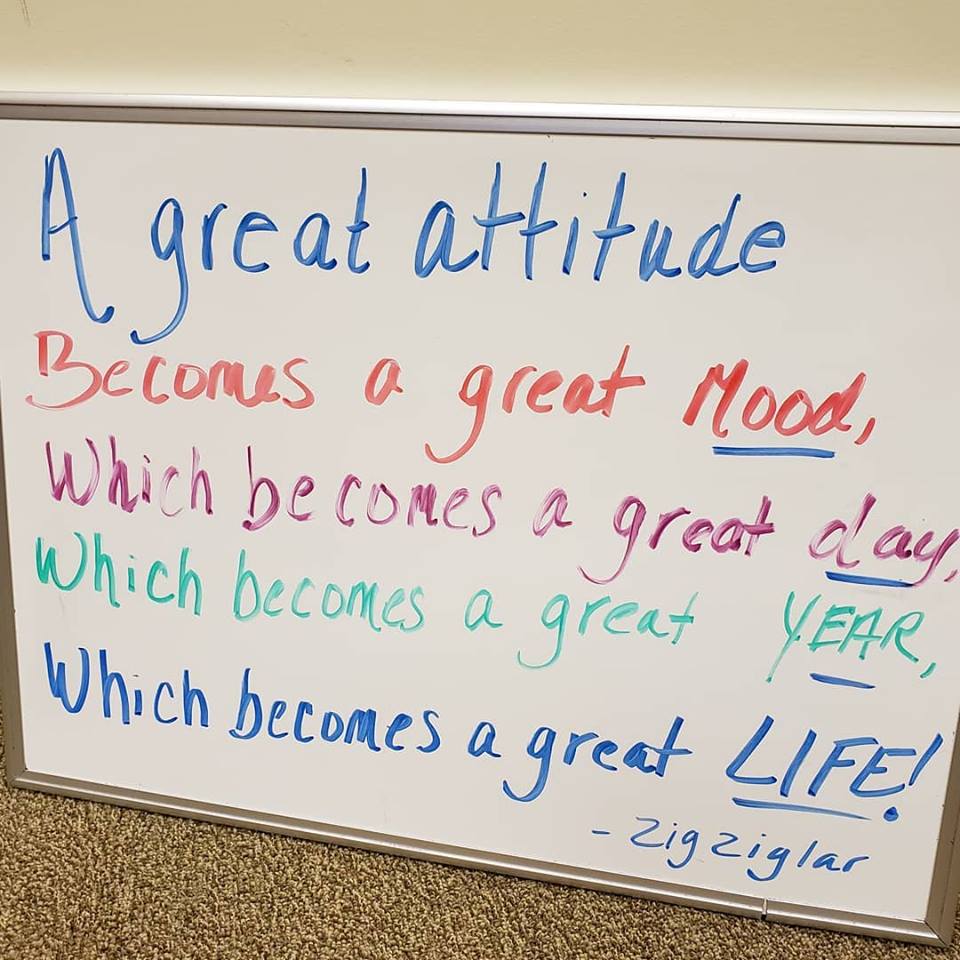 A great attitude
Becomes a great Mood,
Which becomes a great day,
Which becomes a great YEAR,
Which becomes a great LIFE!
- Zig Ziglar